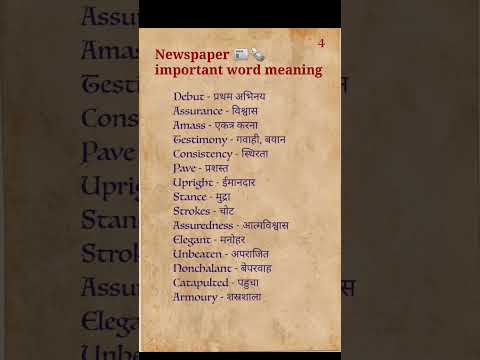 4
Newspaper
important word meaning
Debut - प्रथम अभिनय
Assurance - विश्वास
Amass - एकत्र करना
Testimony - गवाही, बयान
Consistency - स्थिरता
Pave - प्रशस्त
Upright - ईमानदार
Stance - मुद्रा
Strokes - चोट
Assuredness - आत्मविश्वास
Elegant - मनोहर
Unbeaten - अपराजित
Nonchalant - बेपरवाह
Catapulted - पहुचा
Armoury - शस्त्रशाला